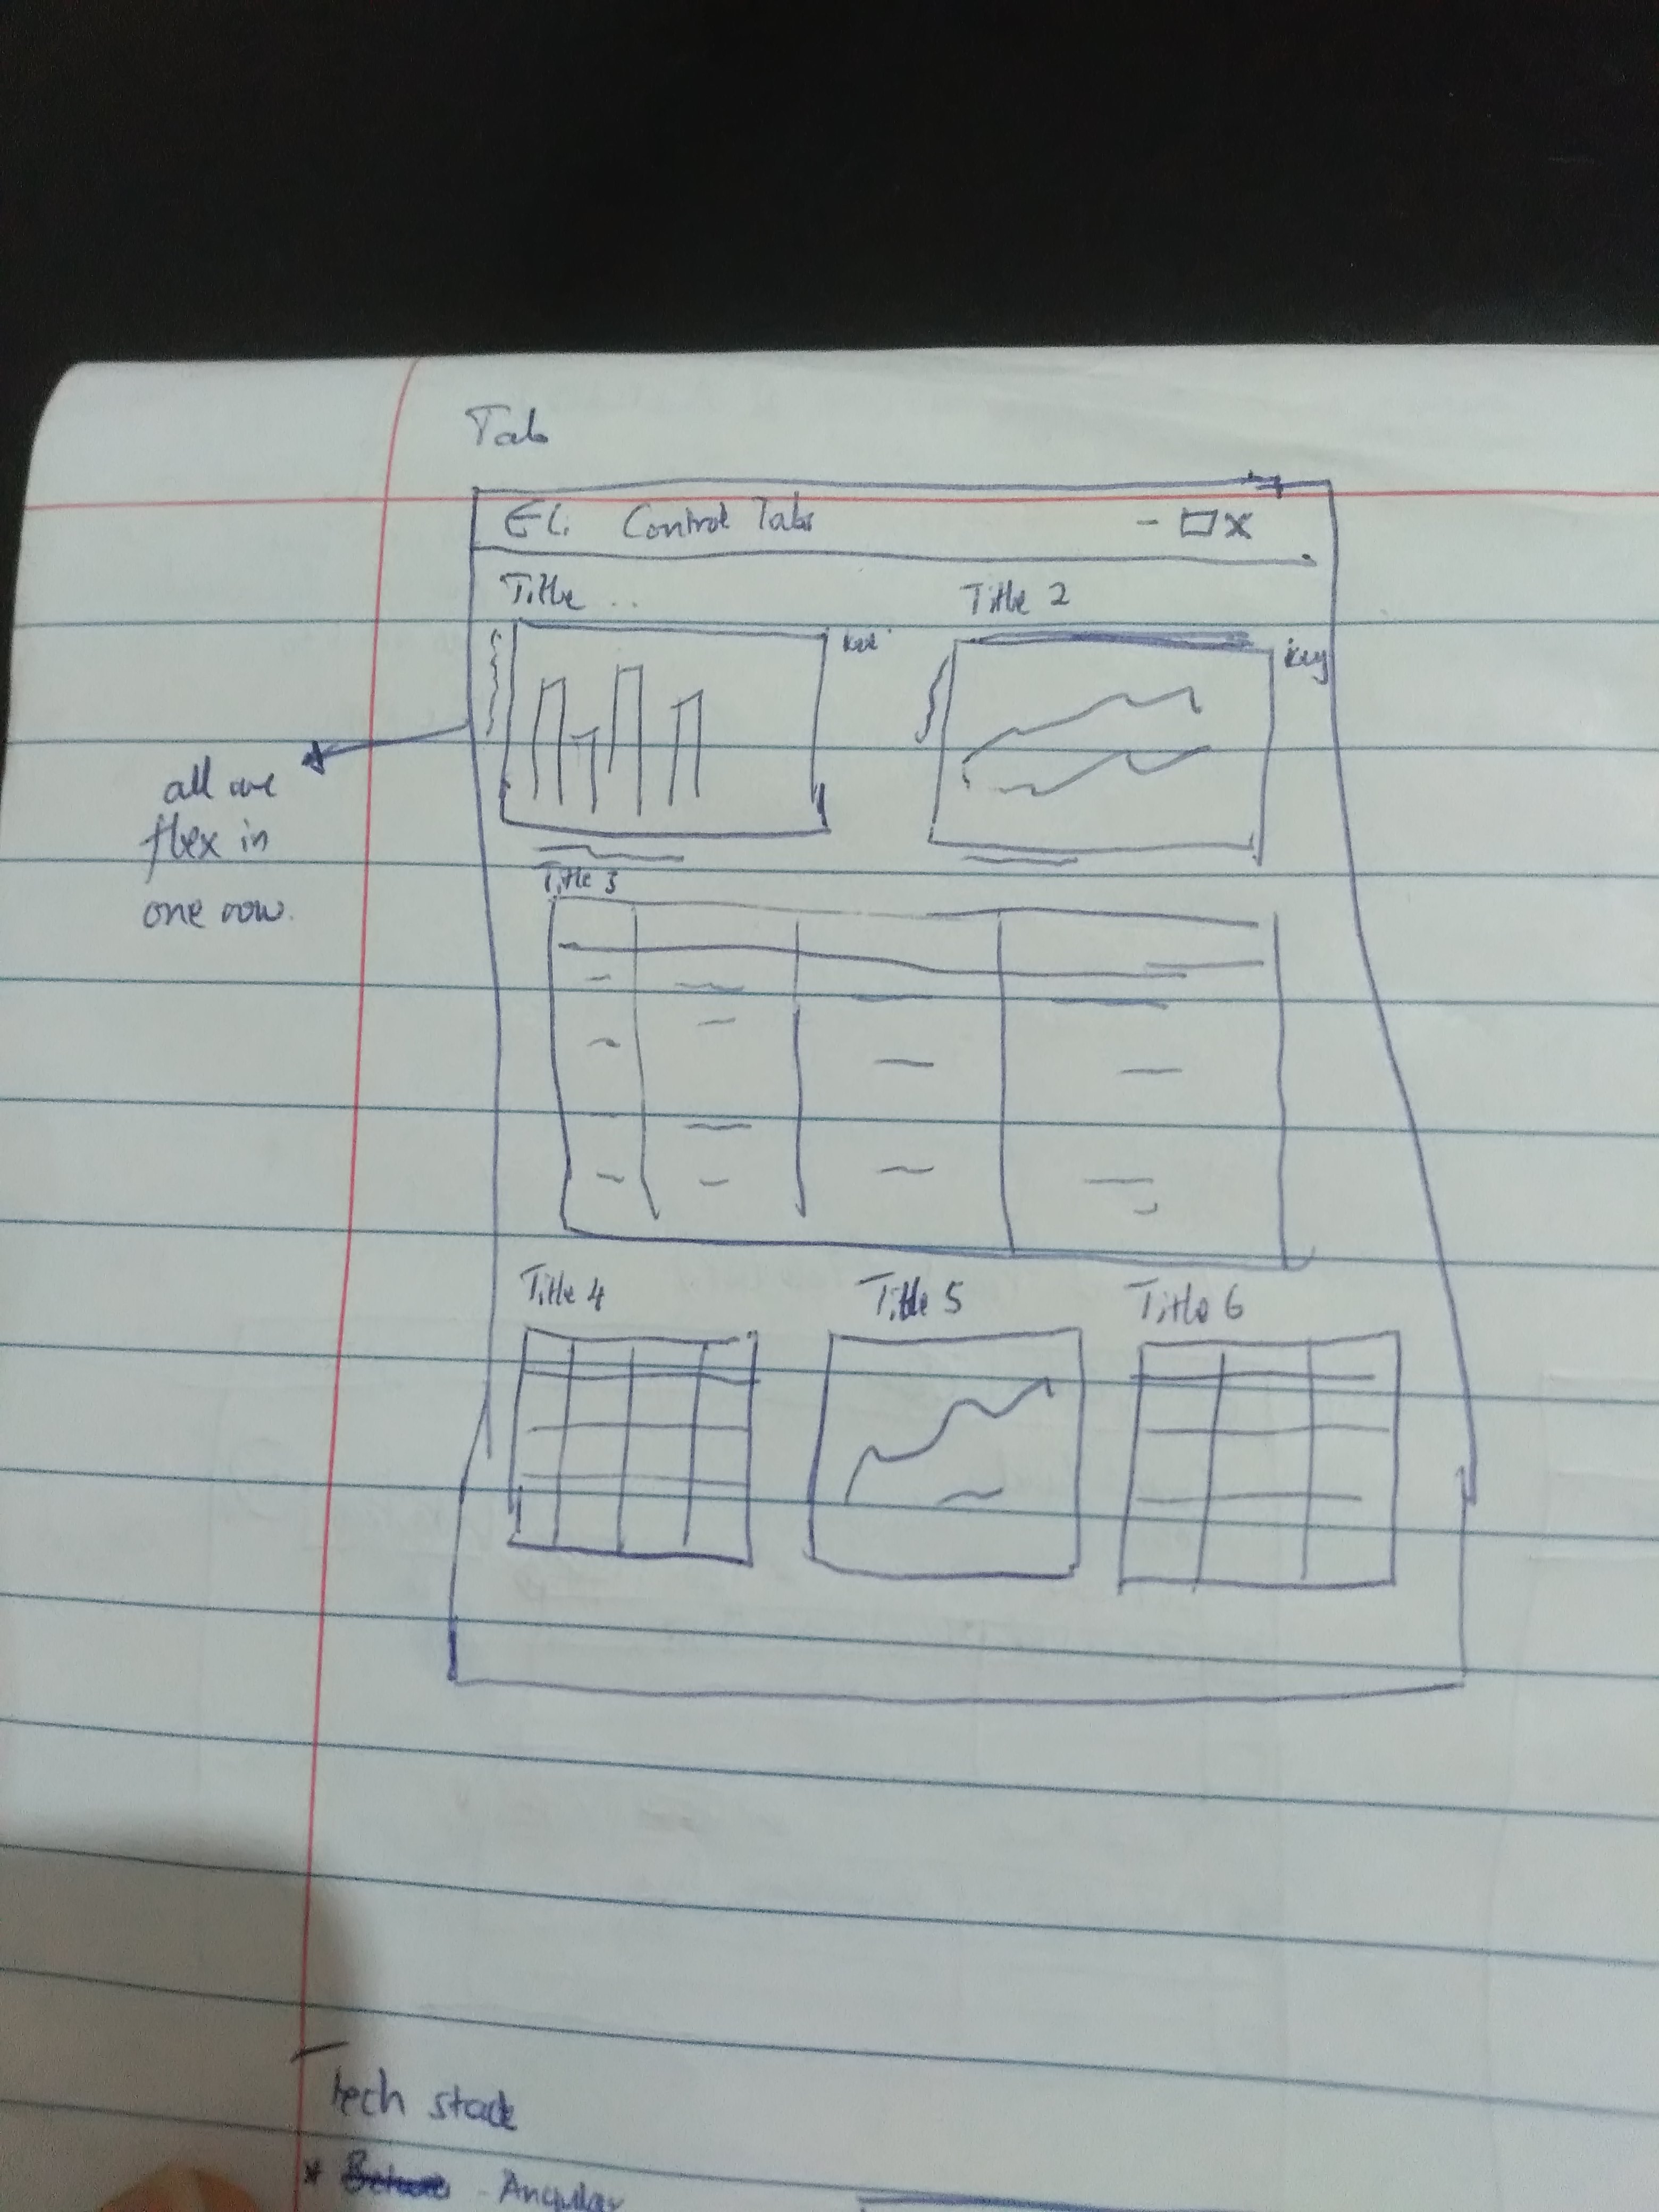 Tab
Control Tabs - □ X
Title
Title 2
key
all are
flex in
one row.
Title 3
Title 4 Title 5 Title 6
Tech stack
* - Angular